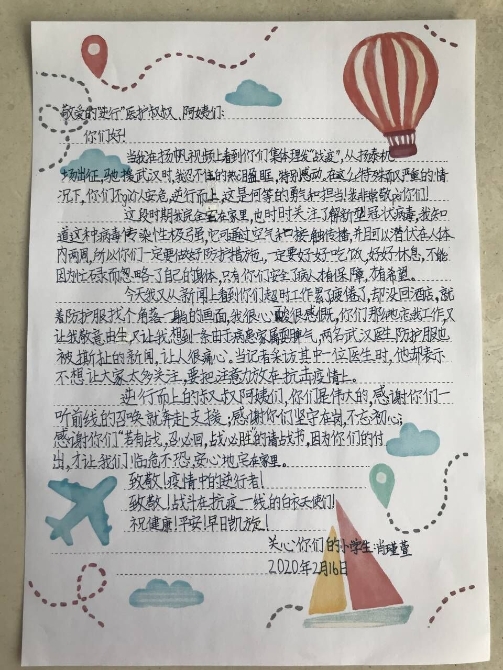 敬爱的“逆行”医护叔叔、阿姨们:
你们好!
当我在扬帆视频上看到你们集体理发“战疫”,从扬泰机
场出征,驰援武汉时,我忍不住的热泪盈眶,特别感动,在这么特殊而又严重的情
况下,你们不顾个人安危,逆行而上,这是何等的勇气和担当!我非常敬向你们!
这段时期我完全宅在家里,也时时关注了解新型冠状病毒,我知
道这种病毒传染性极强,它可通过空气和接触传播,并且可以潜伏在人体
内两周,所以你们一定要做好防护措施,一定要好好吃饭,好好休息,不能
因为忙碌而忽略了自己的身体,只有你们安全了病人才有保障,才有希望。
今天我又从新闻上看到你们超时工作累了疲倦了,却没回酒店,就
着防护服找个角落一躺的画面,我很心酸很感慨,你们那么地忘我工作又
让我敬意由生,又让我想到一条由于病患家属耍脾气,两名武汉医生防护服也
被撕扯的新闻,让人很痛心。当记者采访其中一位医生时,他却表示
不想让大家太多关注,要把注意力放在抗击疫情上。
逆行而上的叔叔阿姨们,你们是伟大的,感谢你们一
听前线的召唤就奔赴支援,感谢你们坚守在岗,不忘初心;
感谢你们“若有战,召必回,战必胜”的请战书,因为你们的付
出,才让我们临危不恐,安心地宅在家里。
致敬!疫情中的逆行者!
致敬!战斗在抗疫一线的白衣天使们!
祝健康!平安!早日凯旋!
关心你们的小学生:肖瑾萱
2020年2月16日